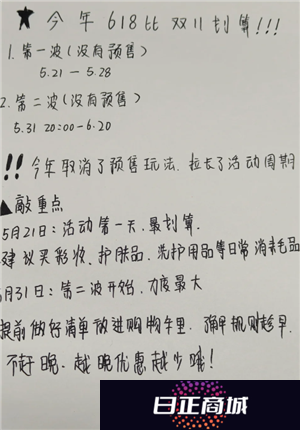 ★ 今年618比双11划算!!!
1.第一波(没有预售)
5.21 - 5.28
2.第二波(没有预售)
5.31 20:00-6.20
!! 今年取消了预售玩法.拉长了活动周期
▲敲重点
5月21日:活动第一天.最划算.
建议买彩妆、护肤品、洗护用品等日常消耗品
5月31日:第二波开始.力度最大
提前做好清单放进购物车里.
规则趁早.
不赶晚.越晚优惠越少哦!
日正商城